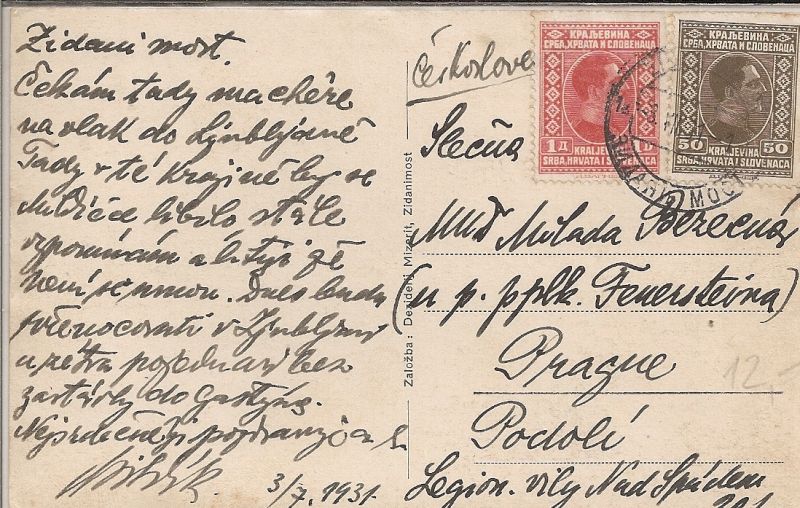 Zidani most.
Čekám tady ma chére
na vlak do Ljubljaně
Tady v té krajině by se
líbilo stále
vzpomínám a lituji že
není se mnou. Dnes budu
přenocovati v Ljubljani
a zítra pojedu asi bez
zastávky do Gastýnu.
Nejsrdečněji pozdravuje a l.
3/7. 1931.
Založba: Deziderij Mizerit, Zidanimost
Českoslove
КРАЉЕВИНА
СРБА, ХРВАТА И СЛОВЕНАЦА
1 Д
KRALJEVINA
SRBA, HRVATA I SLOVENACA
КРАЉЕВИНА
СРБА, ХРВАТА И СЛОВЕНАЦА
50 50
KRALJEVINA
SRBA, HRVATA I SLOVENACA
ZIDANI MOST
Slečna
MUDr Milada Bezecná
(u p. pplk. Feuersteina)
Prague
Podolí
Legion. vily Nad Spádem
12,-